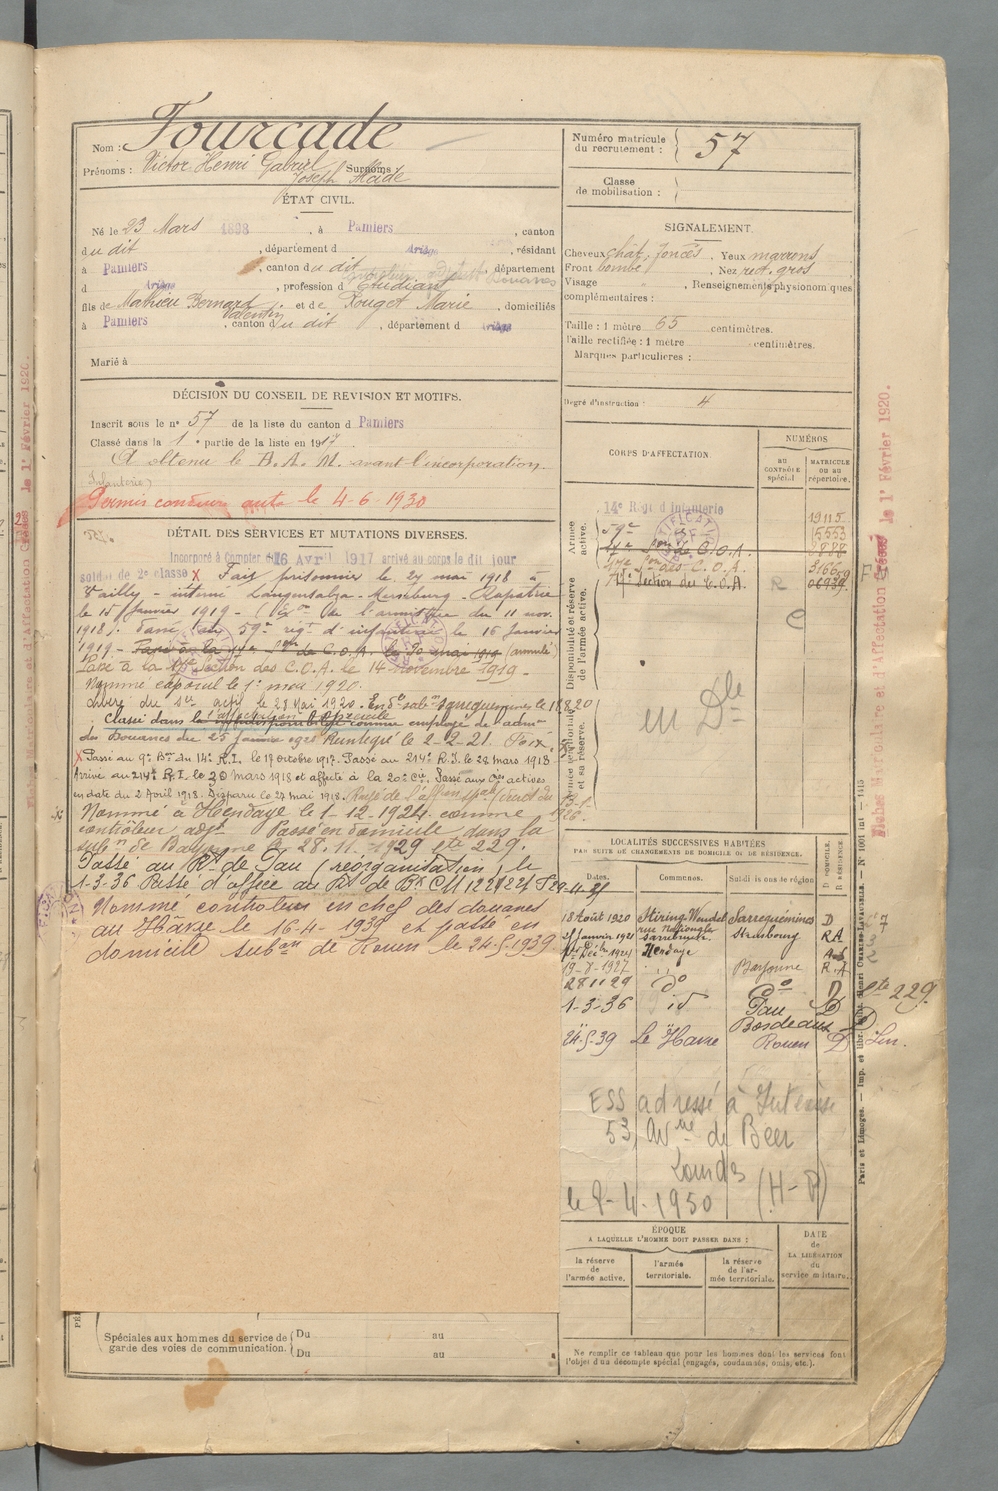 Nom : Fourcade
Prénoms : Victor Henri Gabriel Joseph Surnoms :
Numéro matricule du recrutement : 57
Classe de mobilisation :
ÉTAT CIVIL.
Né le 23 Mars 1898, à Pamiers, canton
du dit, département d Ariège, résidant
à Pamiers, canton du dit, département
d Ariège, profession d Étudiant Douanes
fils de Mathieu Bernard Valentin et de Rouget Marie, domiciliés
à Pamiers, canton du dit, département d Ariège
Marié à
SIGNALEMENT.
Cheveux chât. foncés. Yeux marrons
Front bombé, Nez rect. gros
Visage " , Renseignements physionomiques
complémentaires :
Taille : 1 mètre 65 centimètres.
Taille rectifiée : 1 mètre centimètres.
Marques particulières :
Degré d'instruction : 4
DÉCISION DU CONSEIL DE REVISION ET MOTIFS.
Inscrit sous le n° 57 de la liste du canton d Pamiers
Classé dans la 1e partie de la liste en 1917
A obtenu le B. A. M. avant l'incorporation.
Infanterie
Permis conduire auto le 4-6-1930
DÉTAIL DES SERVICES ET MUTATIONS DIVERSES.
Incorporé à compter du 16 Avril 1917 arrivé au corps le dit jour
soldat de 2e classe X Fait prisonnier le 27 mai 1918 à
Vailly - interné Langensalza - Merseburg - Rapatrié
le 15 Janvier 1919 - (Exon de l'armistice du 11 nov.
1918). Passé au 59e rigt d'infanterie le 16 Janvier
1919 - Passé à la 17e Son de C.O.A. le 20 mai 1919 (annulé)
Passé à la 17e Section des C.O.A. le 14 novembre 1919 -
Nommé caporal le 1er mai 1920.
Classé dans l'affectation spéciale comme employé de admon
des Douanes du 25 Janvier 1921 Réintégré le 2-2-21. Foix
X Passé au 9e Bon du 14e R.I. le 17 octobre 1917. Passé au 214e R.I. le 28 mars 1918
Arrivé au 214e R.I. le 30 mars 1918 et affecté à la 20e Cie. Passé aux Cies actives
en date du 2 Avril 1918. Disparu le 27 mai 1918.
Nommé à Hendaye le 1-12-1924 comme
contrôleur adjt Passé en domicile dans la
subon de Bayonne le 28.11.1929 ste 229.
Passé au Rt de Pau (réorganisation) le
1-3-36
Nommé contrôleur en chef des douanes
au Hâvre le 16-4-1939 et passé en
domicile subon de Rouen le 24-5-1939
CORPS D'AFFECTATION.
NUMÉROS
AU CONTRÔLE spécial
MATRICULE OU AU répertoire.
Armée active.
14e Régt d'Infanterie 19115
59e 15553
17e Son de C.O.A.
17e Son des C.O.A.
17e Section de C.O.A.
Disponibilité et réserve de l'armée active.
R
C
en Dle
Armée territoriale et sa réserve.
LOCALITÉS SUCCESSIVES HABITÉES
PAR SUITE DE CHANGEMENTS DE DOMICILE OU DE RÉSIDENCE.
Dates. Communes. Subdivisions de région D DOMICILE. R RÉSIDENCE.
18 Août 1920 Stiring-Wendel Sarreguemines D
rue Nationale
21 Janvier 1921 Strasbourg RA
1er Déc bre 1924 Hendaye
19-7-1927 " Bayonne R.A
28 11 29 do do D
1-3-36 id Pau D
Bordeaux D
24-5-39 Le Havre Rouen D
ste 229
ESS adressé à Intéressé
53, Avnue de Beer
Lourdes
le 8-4-1950 (H-P)
ÉPOQUE
A LAQUELLE L'HOMME DOIT PASSER DANS :
la réserve de l'armée active.
l'armée territoriale.
la réserve de l'armée territoriale.
DATE de LA LIBÉRATION du service militaire.
Spéciales aux hommes du service de garde des voies de communication.
Du au
Du au
Ne remplir ce tableau que pour les hommes dont les services font
l'objet d'un décompte spécial (engagés, condamnés, omis, etc.).
Fiches Matriculaire et d'Affectation Créées le 1er Février 1920.
Paris et Limoges. — Imp. et libr. milit. Henri CHARLES-LAVAUZELLE. — N° 1001 int — 1915